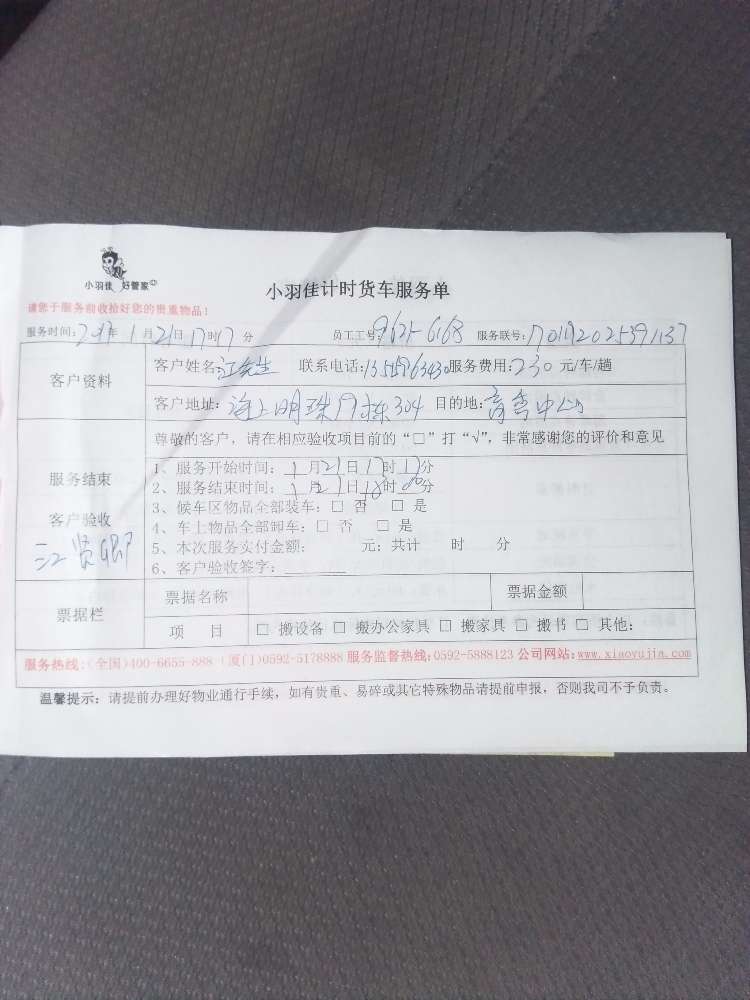 小羽佳 好管家
小羽佳计时货车服务单
请您于服务前收拾好您的贵重物品!
服务时间: 年 1 月 21 日 17 时 17 分 员工工号: 9625-6168 服务联号:
客户资料
客户姓名: 江先生 联系电话: 服务费用: 230 元/车/趟
客户地址: 海上明珠 栋304 目的地: 中心
尊敬的客户,请在相应验收项目前的“□”打“√”,非常感谢您的评价和意见
服务结束
客户验收
1、服务开始时间: 1 月 21 日 17 时 17 分
2、服务结束时间: 1 月 21 日 18 时 分
3、候车区物品全部装车:□ 否 □ 是
4、车上物品全部卸车:□ 否 □ 是
5、本次服务实付金额: 元;共计 时 分
6、客户验收签字:
票据栏
票据名称 票据金额
项 目 □ 搬设备 □ 搬办公家具 □ 搬家具 □ 搬书 □ 其他:
服务热线:(全国)400-6655-888 (厦门)0592-5178888 服务监督热线:0592-5888123 公司网站:www.xiaoyujia.com
温馨提示:请提前办理好物业通行手续,如有贵重、易碎或其它特殊物品请提前申报,否则我司不予负责。